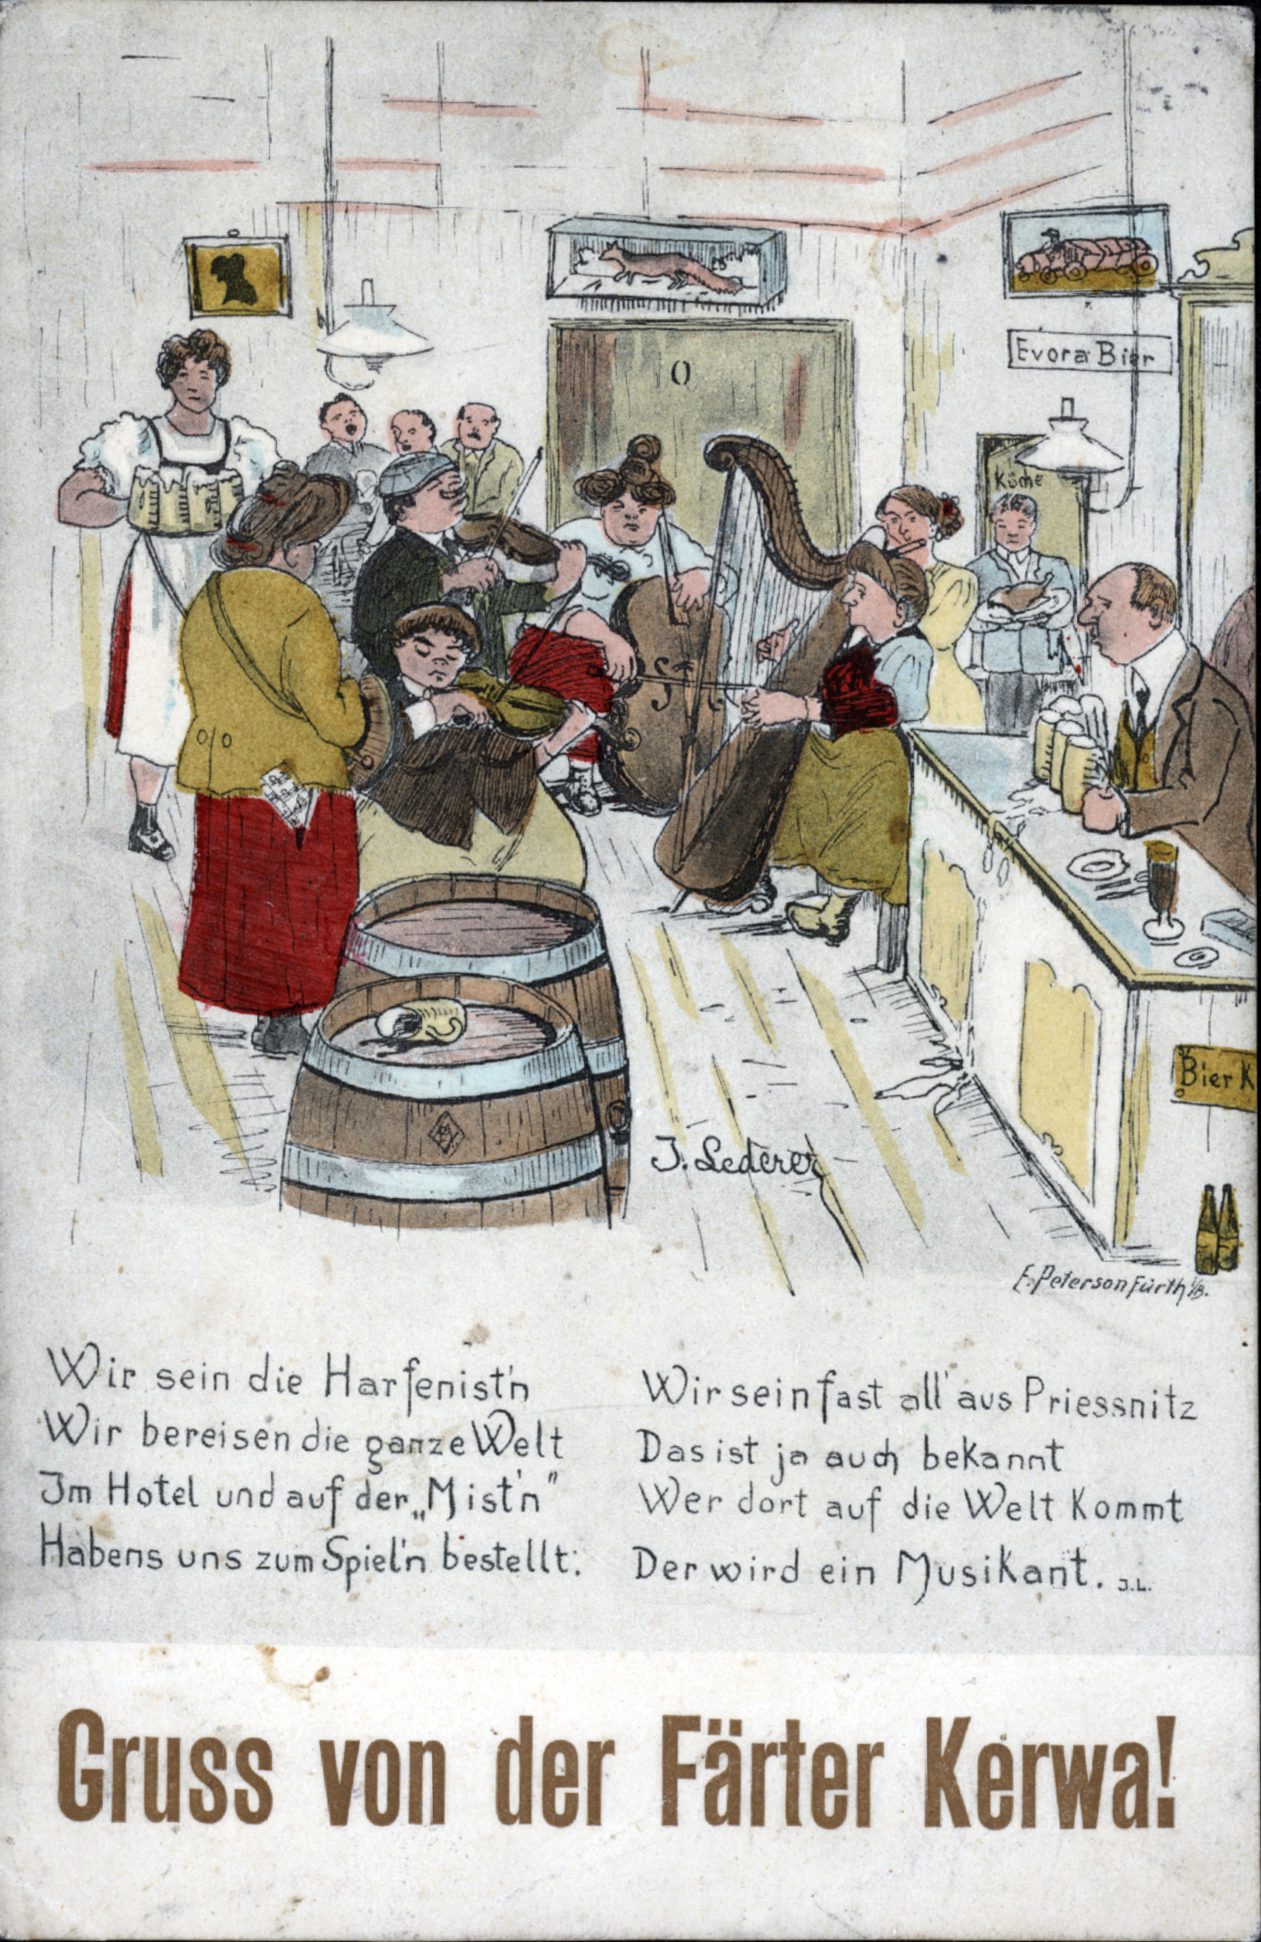 0
Evora Bier
Küche
Bier K
J. Lederer
E. Peterson Fürth i/B.
Wir sein die Harfenist'n
Wir bereisen die ganze Welt
Im Hotel und auf der „Mist'n"
Habens uns zum Spiel'n bestellt.
Wir sein fast all' aus Priessnitz
Das ist ja auch bekannt
Wer dort auf die Welt kommt
Der wird ein Musikant. J.L.
Gruss von der Färter Kerwa!